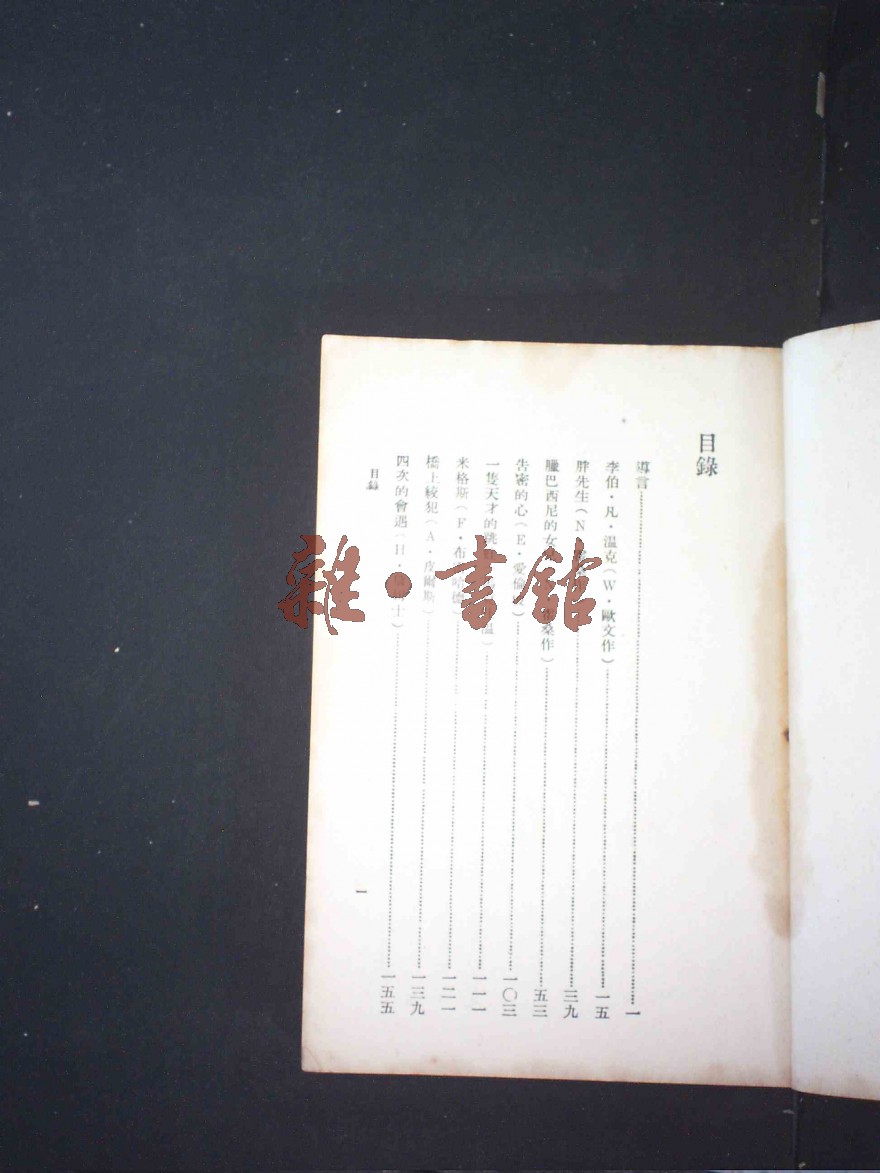 目錄
導言 一
李伯・凡・溫克(W・歐文作) 一五
胖先生(N 三九
臘巴西尼的女 桑作) 五三
告密的心(E・愛倫 ) 一〇三
一隻天才的跳 溫) 一一一
米格斯(F・布 哈德) 一二一
橋上絞犯(A・皮爾斯) 一三九
四次的會遇(H・ 士) 一五五
目錄
一
雜・書館